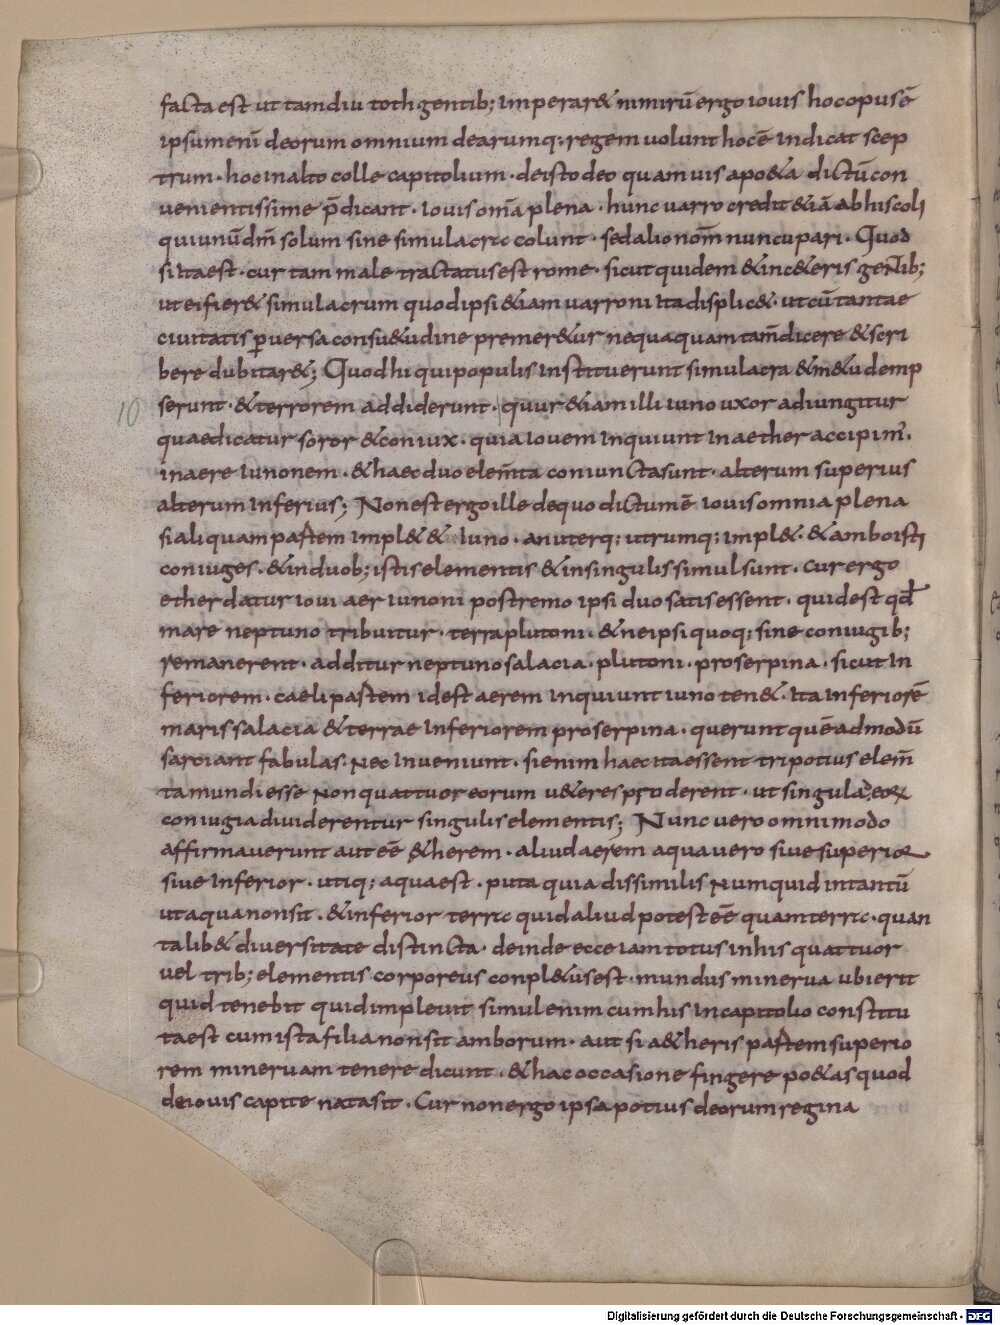 facta est ut tamdiu toth gentib; imperar& nimirū ergo iouis hoc opus ē
ipsum enī deorum omnium dearumq; regem uolunt hoc ē indicat scep
trum · hoc in alto colle capitolium · de isto deo quam uis a po&a dictū con
uenientissime p̄dicant · iouis om̄a plena · hunc uarro credit &iā ab his coli
qui unū dm̄ solum sine simulacro colunt · sed alio nom̄ nuncupari · Quod
si ita est · cur tam male tractatus est rome · sicut quidem & in c&eris gentib;
ut ei fier& simulacrum quod ipsi &iam uarroni ita displic& · ut cū tantae
ciuitatis puersa consu&udine premer&ur nequaquam tam̄ dicere & scri
bere dubitar&; Quod hi qui populis instituerunt simulacra & m&ū demp
10 serunt · & terrorem addiderunt · quur &iam illi iuno uxor adiungitur
quae dicatur soror & coniux · quia iouem inquiunt in aether accipim᾽ ·
in aere iunonem · & haec duo elem̄ta coniuncta sunt · alterum superius
alterum inferius; Non est ergo ille de quo dictum ē iouis omnia plena
si aliquam partem impl& & iuno · an uterq; utrumq; impl& · & ambo isti
coniuges · & in duob; istis elementis & in singulis simul sunt · cur ergo
ether datur ioui aer iunoni postremo ipsi duo satis essent · quid est qđ
mare neptuno tribuitur · terra plutoni · & ne ipsi quoq; sine coniugib;
remanerent · additur neptuno salacia · plutoni · proserpina · sicut in
feriorem · caeli partem id est aerem inquiunt iuno ten& · ita inferiorē
maris salacia & terrae inferiorem proserpina · querunt quē ad modū
sarciant fabulas · nec inueniunt · si enim haec ita essent tri potius elem̄
ta mundi esse non quattuor eorum u&eres proderent · ut singula eoꝝ
coniugia diuiderentur singulis elementis; Nunc uero omni modo
affirmauerunt aut eē &herem · aliud aerem aqua uero siue superior
siue inferior · utiq; aqua est · puta quia dissimilis numquid in tantū
ut aqua non sit · & inferior terra quid aliud potest eē quam terra · quan
talib& diuersitate distincta · deinde ecce iam totus in his quattuor
uel trib; elementis corporeus conpl&us est · mundus minerua ubi erit
quid tenebit quid impleuit simul enim cum his in capitolio constitu
ta est cum ista filia non sit amborum · aut si a&heris partem superio
rem mineruam tenere dicunt · & hac occasione fingere po&as quod
de iouis capite nata sit · Cur non ergo ipsa potius deorum regina
Digitalisierung gefördert durch die Deutsche Forschungsgemeinschaft - DFG